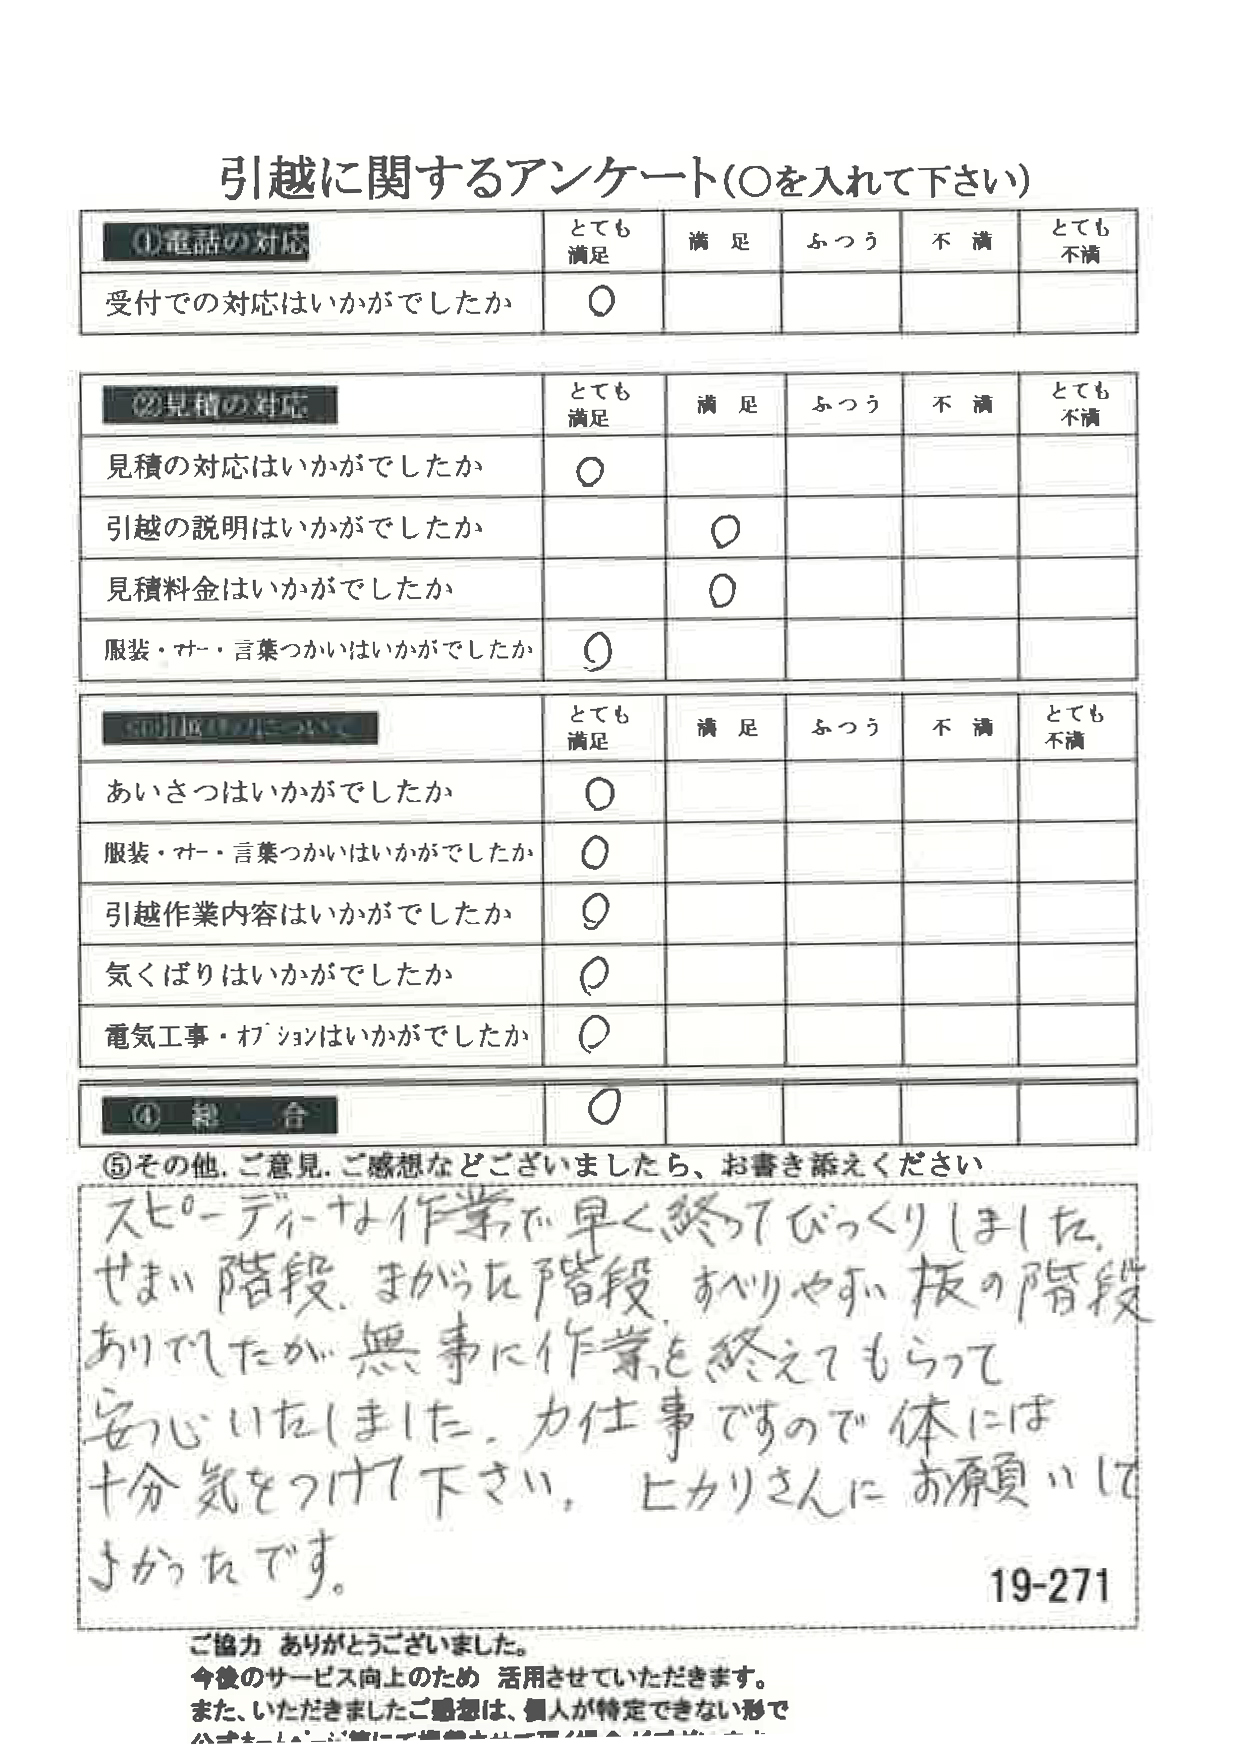 引越に関するアンケート(○を入れて下さい)
①電話の対応 とても満足 満 足 ふつう 不 満 とても不満
受付での対応はいかがでしたか ○
②見積の対応 とても満足 満 足 ふつう 不 満 とても不満
見積の対応はいかがでしたか ○
引越の説明はいかがでしたか ○
見積料金はいかがでしたか ○
服装・マナー・言葉つかいはいかがでしたか ○
について とても満足 満 足 ふつう 不 満 とても不満
あいさつはいかがでしたか ○
服装・マナー・言葉つかいはいかがでしたか ○
引越作業内容はいかがでしたか ○
気くばりはいかがでしたか ○
電気工事・オプションはいかがでしたか ○
④ 総 合 ○
⑤その他.ご意見.ご感想などございましたら、お書き添えください
スピーディーな作業で早く終ってびっくりしました。
せまい階段、まがった階段、すべりやすい板の階段
ありでしたが無事に作業を終えてもらって
安心いたしました。力仕事ですので体には
十分気をつけて下さい。ヒカリさんにお願いして
よかったです。
19-271
ご協力 ありがとうございました。
今後のサービス向上のため 活用させていただきます。
また、いただきましたご感想は、個人が特定できない形で